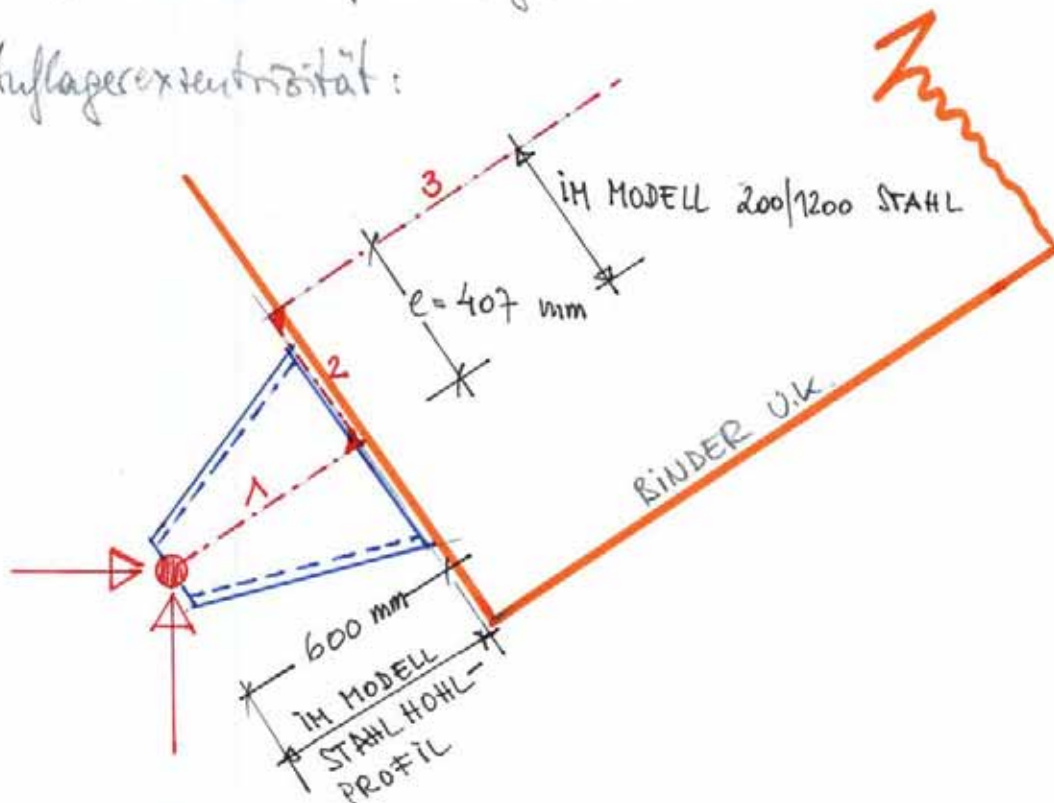 Auflagerexzentrizität:
3
IM MODELL 200/1200 STAHL
e = 407 mm
2
1
BINDER U.K.
600 mm
IM MODELL
STAHL HOHL-
PROFIL